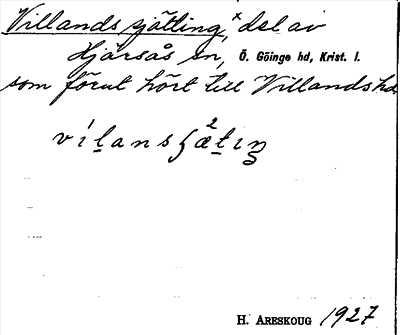 Villands sjätting,ˣ del av
Hjärsås sn, Ö. Göinge hd, Krist. l.
som förut hört till Villands hd.
H. ARESKOUG 1927